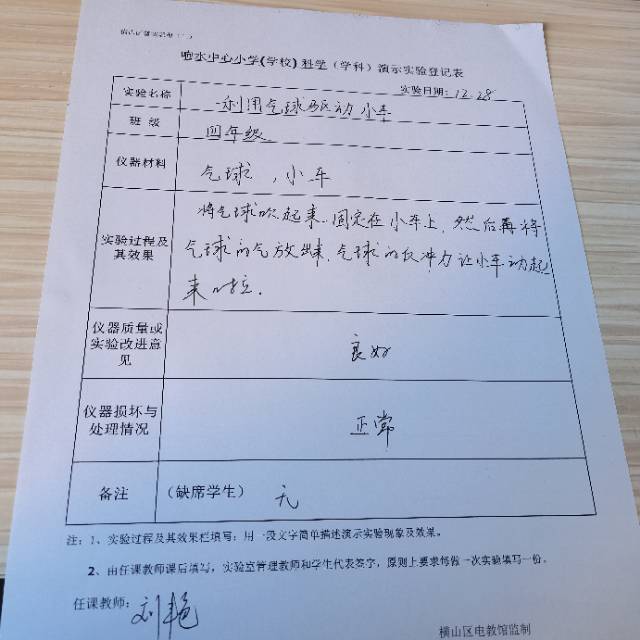 响水中心小学(学校)科学(学科)演示实验登记表
实验名称 利用气球驱动小车 实验日期:12.28
班 级 四年级
仪器材料 气球,小车
实验过程及其效果 将气球吹起来.固定在小车上,然后再将
气球的气放出来,气球的反冲力让小车动起
来
仪器质量或实验改进意见 良好
仪器损坏与处理情况 正常
备注 (缺席学生) 无
注:1、实验过程及其效果栏填写:用一段文字简单描述演示实验现象及效果。
2、由任课教师课后填写,实验室管理教师和学生代表签字,原则上要求每做一次实验填写一份。
任课教师: 刘艳
横山区电教馆监制